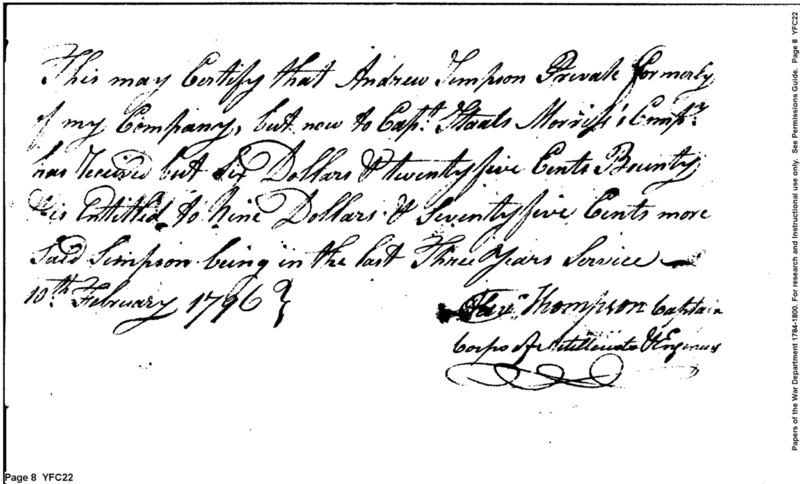 This may Certify that Andrew Simpson Private formerly
of my Company, but now to Capt. Staats Morris's Compy.
has received but Six Dollars & twenty five Cents Bounty
& is Entitled to Nine Dollars & Seventy five Cents more
Said Simpson being in the last Three Years Service
10th February 1796
Thompson Captain
Corps Artillerists & Engineers
Page 8 YFC22
Papers of the War Department 1784-1800. For research and instructional use only. See Permissions Guide. Page 8 YFC22